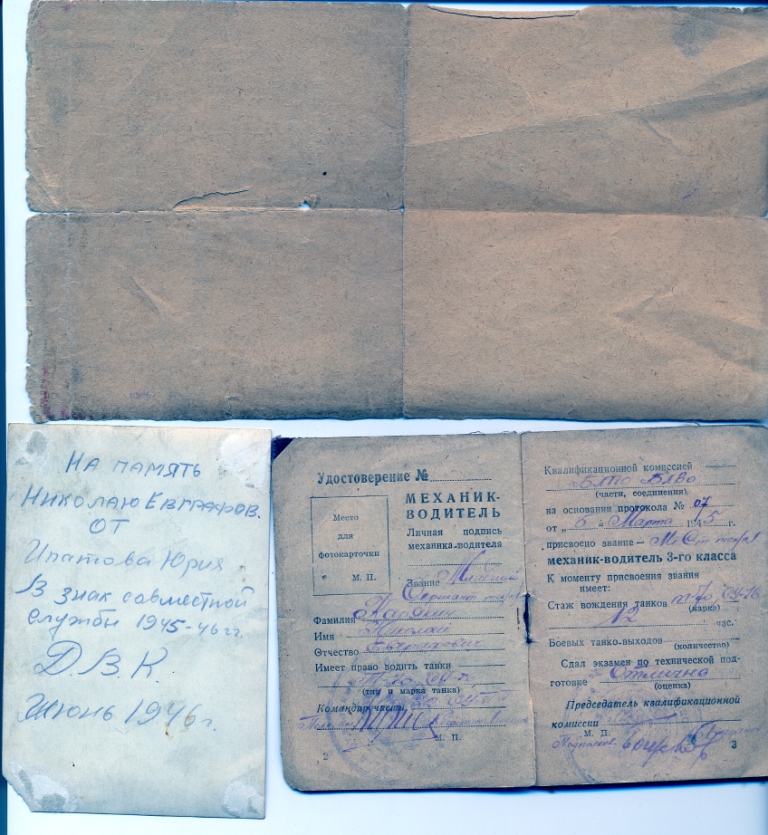 НА ПАМЯТЬ
НИКОЛАЮ ЕВГРАФОВ.
ОТ
Ипатова Юрия
В знак совместной
службы 1945-46 гг.
Д.В.К.
Июнь 1946 г.
Удостоверение №
МЕХАНИК-
ВОДИТЕЛЬ
Место
для
фотокарточки
М. П.
Личная подпись
механика-водителя
Звание Младший
Сержант
Фамилия
Имя Николай
Отчество Евграфович
Имеет право водить танки
(тип и марка танка)
Командир части
М. П.
2
Квалификационной комиссией
(части, соединения)
на основании протокола № 07
от „ 6 " Марта 1945 г.
присвоено звание –
механик-водитель 3-го класса
К моменту присвоения звания
имеет:
Стаж вождения танков
(марка)
12 час.
Боевых танко-выходов
(количество)
Сдал экзамен по технической под-
готовке Отлично
(оценка)
Председатель квалификационной
комиссии
М. П.
3